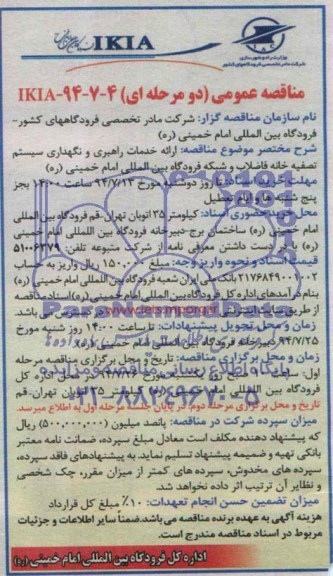 IKIA
وزارت راه و شهرسازی
شرکت مادر تخصصی فرودگاههای کشور
مناقصه عمومی (دو مرحله ای) IKIA-۹۴-۷-۴
نام سازمان مناقصه گزار: شرکت مادر تخصصی فرودگاههای کشور-
فرودگاه بین المللی امام خمینی (ره)
شرح مختصر موضوع مناقصه: ارائه خدمات راهبری و نگهداری سیستم
تصفیه خانه فاضلاب و شبکه فرودگاه بین المللی امام خمینی (ره)
مهلت خرید اسناد: تا روز دوشنبه مورخ ۹۴/۷/۱۳ ساعت ۱۴:۰۰ بجز
پنج شنبه ها و ایام تعطیل
محل خرید حضوری اسناد: کیلومتر ۳۵ اتوبان تهران-قم فرودگاه بین المللی
امام خمینی (ره) ساختمان برج-دبیرخانه فرودگاه بین المللی امام خمینی
(ره) با در دست داشتن معرفی نامه از شرکت متبوعه تلفن: ۵۱۰۰۶۳۷۹
قیمت اسناد و نحوه واریز وجه: مبلغ ۱۵۰.۰۰۰ ریال واریز به حساب
۲۱۷۶۸۴۹۰۰۱۰۰۲ بانک ملی ایران شعبه فرودگاه بین المللی امام خمینی (ره)
بنام درآمدهای اداره کل فرودگاه بین المللی امام خمینی (ره) اسناد مناقصه
از طریق سایت اینترنتی می باشد.
زمان و محل تحویل پیشنهادات: تا ساعت ۱۴:۰۰ روز شنبه مورخ
۹۴/۷/۲۵ دبیرخانه فرودگاه بین المللی امام خمینی (ره)
زمان و محل برگزاری مناقصه: تاریخ و محل برگزاری مناقصه مرحله
اول: ساعت صبح روز مورخ در محل اداره کل
فرودگاه بین المللی امام خمینی ۳۵ اتوبان تهران-قم
تاریخ و محل برگزاری مرحله دوم: در پایان جلسه مرحله اول به اطلاع میرسد.
میزان سپرده شرکت در مناقصه: پانصد میلیون (۵۰۰,۰۰۰,۰۰۰) ریال
که پیشنهاد دهنده مکلف است معادل مبلغ سپرده، ضمانت نامه معتبر
بانکی تهیه و ضمیمه پیشنهاد تسلیم نماید. به پیشنهادهای فاقد سپرده،
سپرده های مخدوش، سپرده های کمتر از میزان مقرر، چک شخصی
و نظایر آن ترتیب اثر داده نخواهد شد.
میزان تضمین حسن انجام تعهدات: ۱۰٪ مبلغ کل قرارداد
هزینه آگهی به عهده برنده مناقصه می باشد.ضمناً سایر اطلاعات و جزئیات
مربوط در اسناد مناقصه مندرج است.
اداره کل فرودگاه بین المللی امام خمینی (ره)
پایگاه اطلاع رسانی مناقصه و مزایده
۰۲۱-۸۸۳۴۹۶۷۰-۵